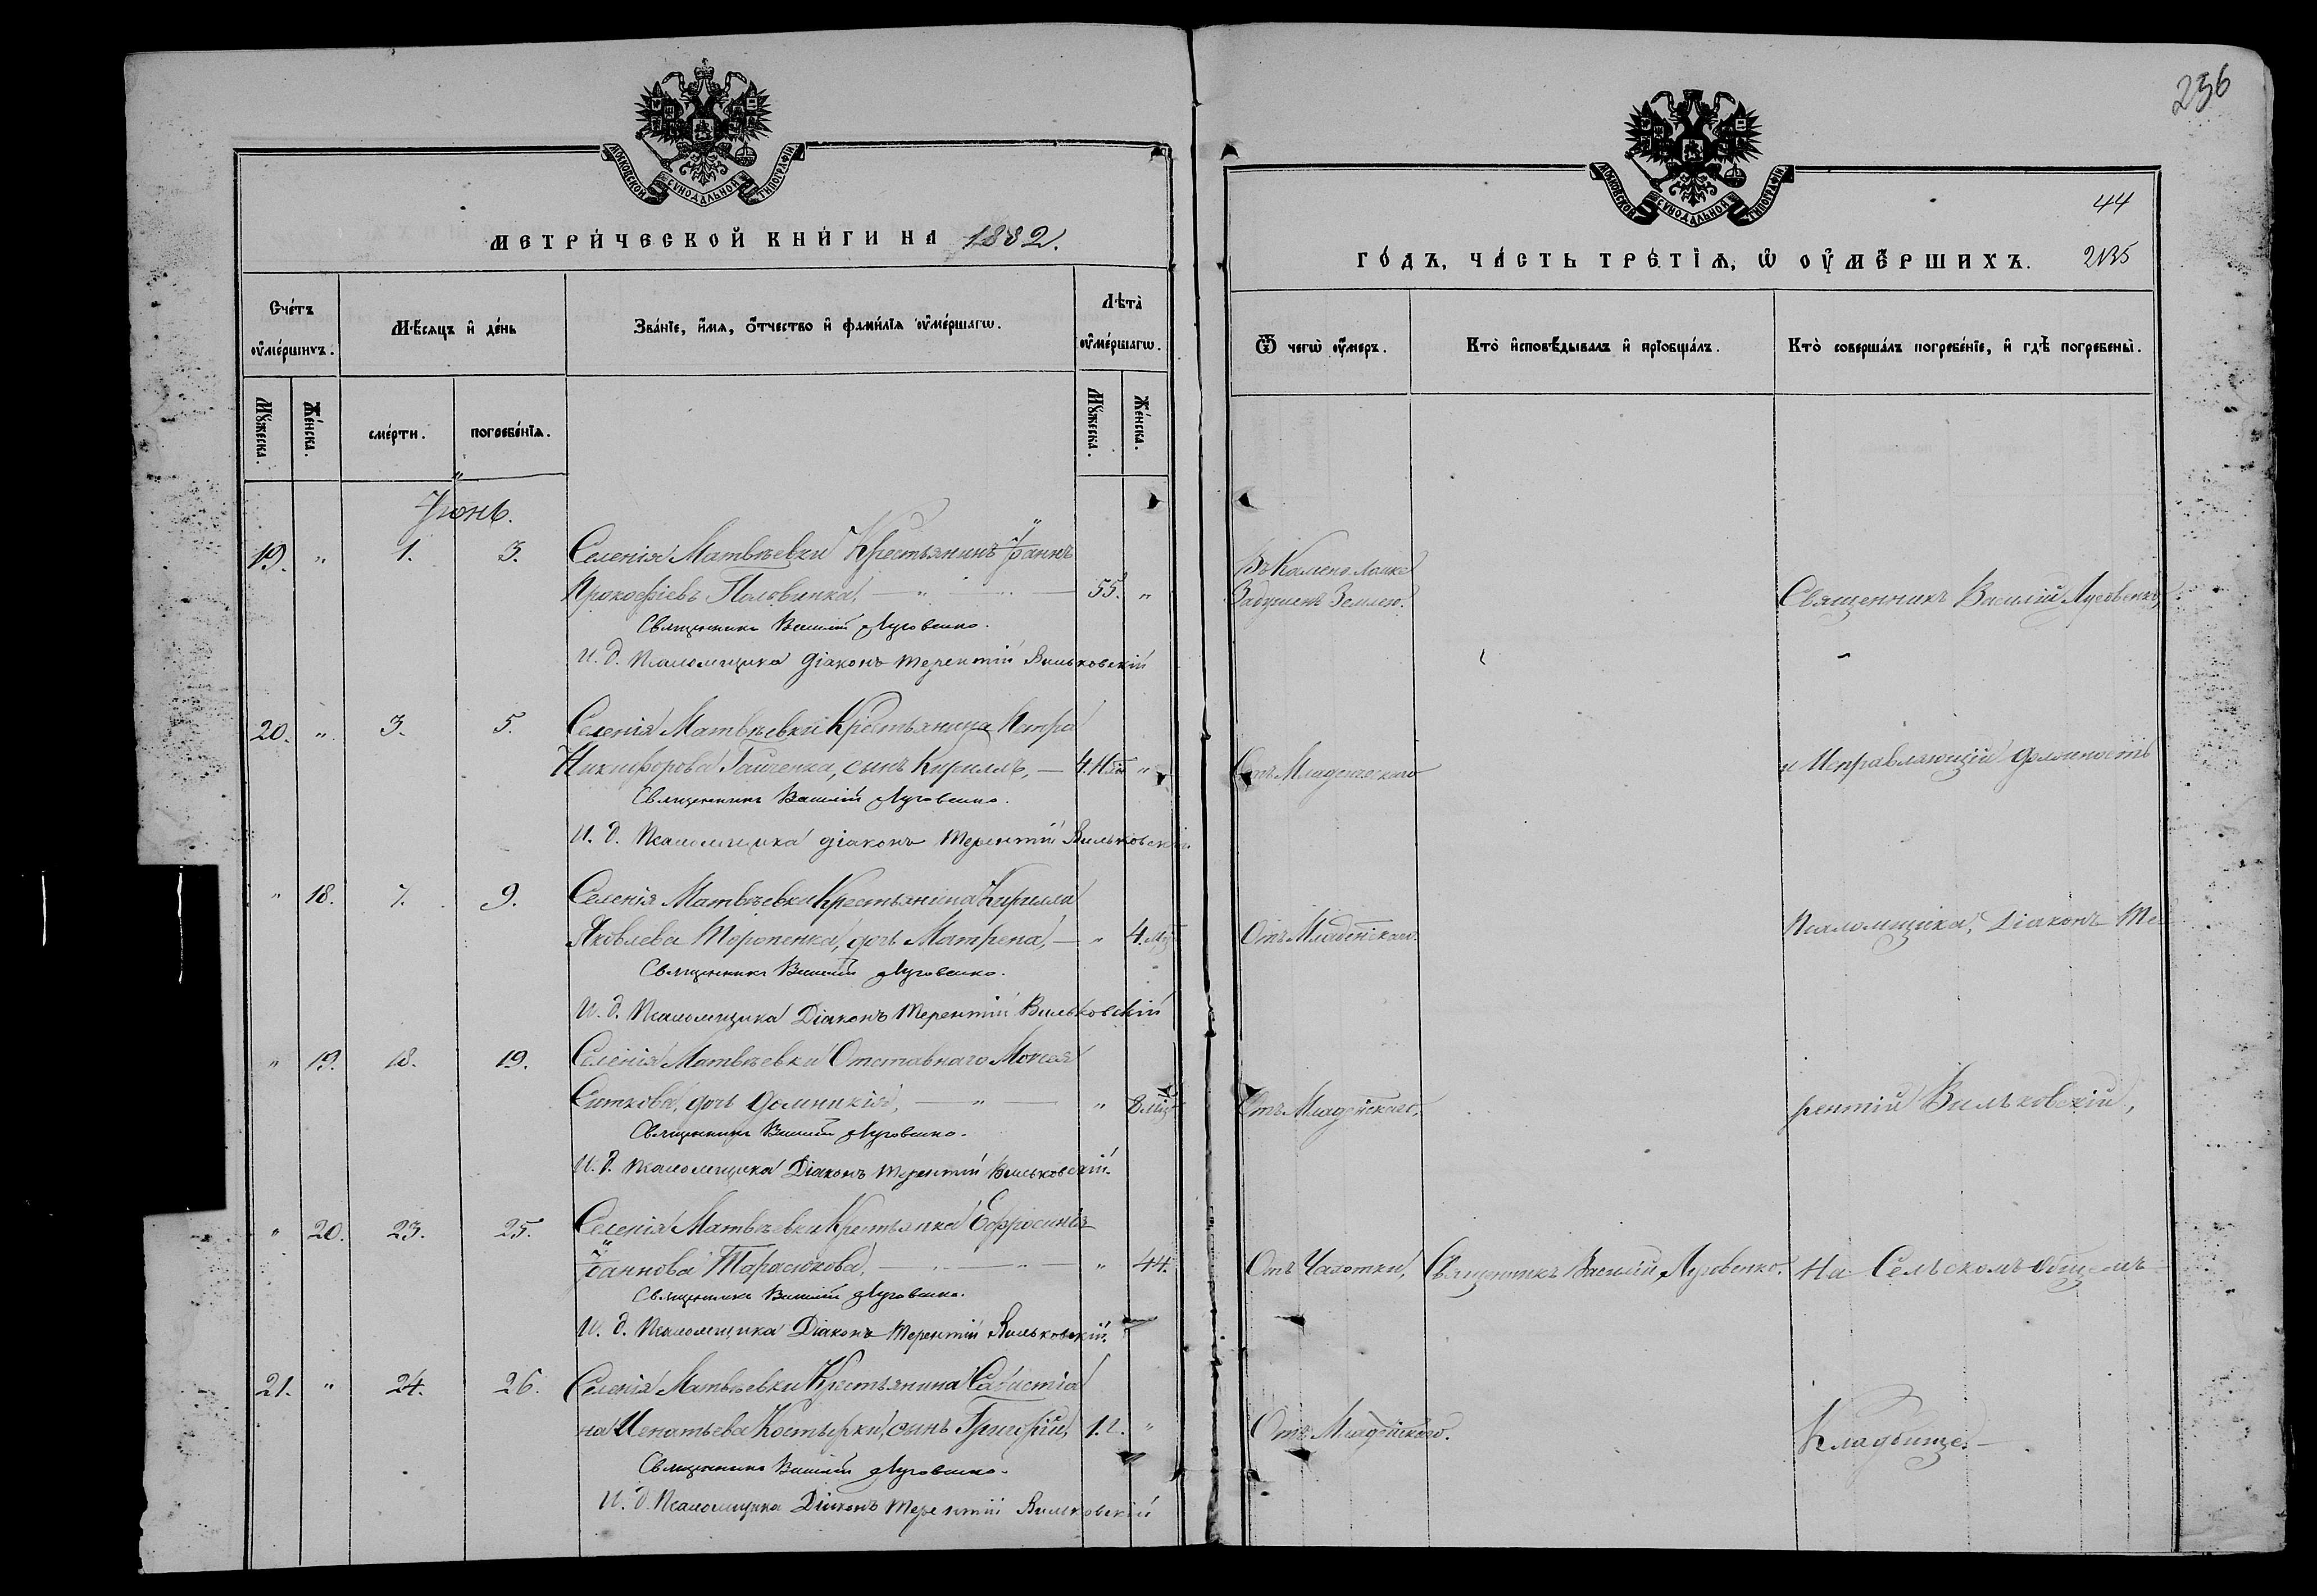 МОСКОВСКОЙ СѴНОДАЛЬНОЙ ТИПОГРАФІИ
МЕТРИ́ЧЕСКОЙ КНИ́ГИ НА 1882.
Счетъ оумершихъ.
Мѣсяцъ и день
Званіе, имя, отчество и фамилія оумершагω.
Лѣта оумершагω.
Мужеска.
Женска.
смерти.
погребенія.
Мужеска.
Женска.
Іюнь.
19. " 1. 3. Селенія Матвѣевки Крестьянинъ Іоаннъ
Прокофіевъ Половинка, — " — 55. "
Священникъ Василій Луговенко.
И. д. Псаломщика діаконъ Терентій Вильковскій
20. " 3. 5. Селенія Матвѣевки Крестьянина Петра
Никифорова Гайченка, сынъ Кириллъ, — 4. "
Священникъ Василій Луговенко.
И. д. Псаломщика діаконъ Терентій Вильковскій
" 18. 7. 9. Селенія Матвѣевки Крестьянина Кирилла
Яковлева Торопенка, дочь Матрена, — " 4. мѣс
Священникъ Василій Луговенко.
И. д. Псаломщика Діаконъ Терентій Вильковскій
" 19. 18. 19. Селенія Матвѣевки Отставнаго Моисея
Ситкова, дочь Домникія, — " — " 8 мѣс
Священникъ Василій Луговенко.
И. д. Псаломщика Діаконъ Терентій Вильковскій.
" 20. 23. 25. Селенія Матвѣевки Крестьянка Ефросинія
Іоаннова Тарасюкова, — " — " — " 44.
Священникъ Василій Луговенко.
И. д. Псаломщика Діаконъ Терентій Вильковскій.
21. " 24. 26. Селенія Матвѣевки Крестьянина Савастіа
на Игнатьева Костырки, сынъ Григорій, 1. "
Священникъ Василій Луговенко.
И. д. Псаломщика Діаконъ Терентій Вильковскій
236
МОСКОВСКОЙ СѴНОДАЛЬНОЙ ТИПОГРАФІИ
44
ГОДЪ, ЧАСТЬ ТРЕТІѦ, Ѡ ОУМЕРШИХЪ. 235
Ѿ чегω оумеръ.
Кто исповѣдывалъ и пріобщалъ.
Кто совершалъ погребеніе, и гдѣ погребены.
Въ Каменоломнѣ
Задушенъ Землею.
Священникъ Василій Луговенко
Отъ Младенческаго
и Исправляющій должность
Отъ Младенскаго.
Псаломщика, Діаконъ Те
Отъ Младенскаго,
рентій Вильковскій,
Отъ Чахотки, Священникъ Василій Луговенко. На Сельскомъ Общемъ
Отъ Младенскаго.
Кладбище. —